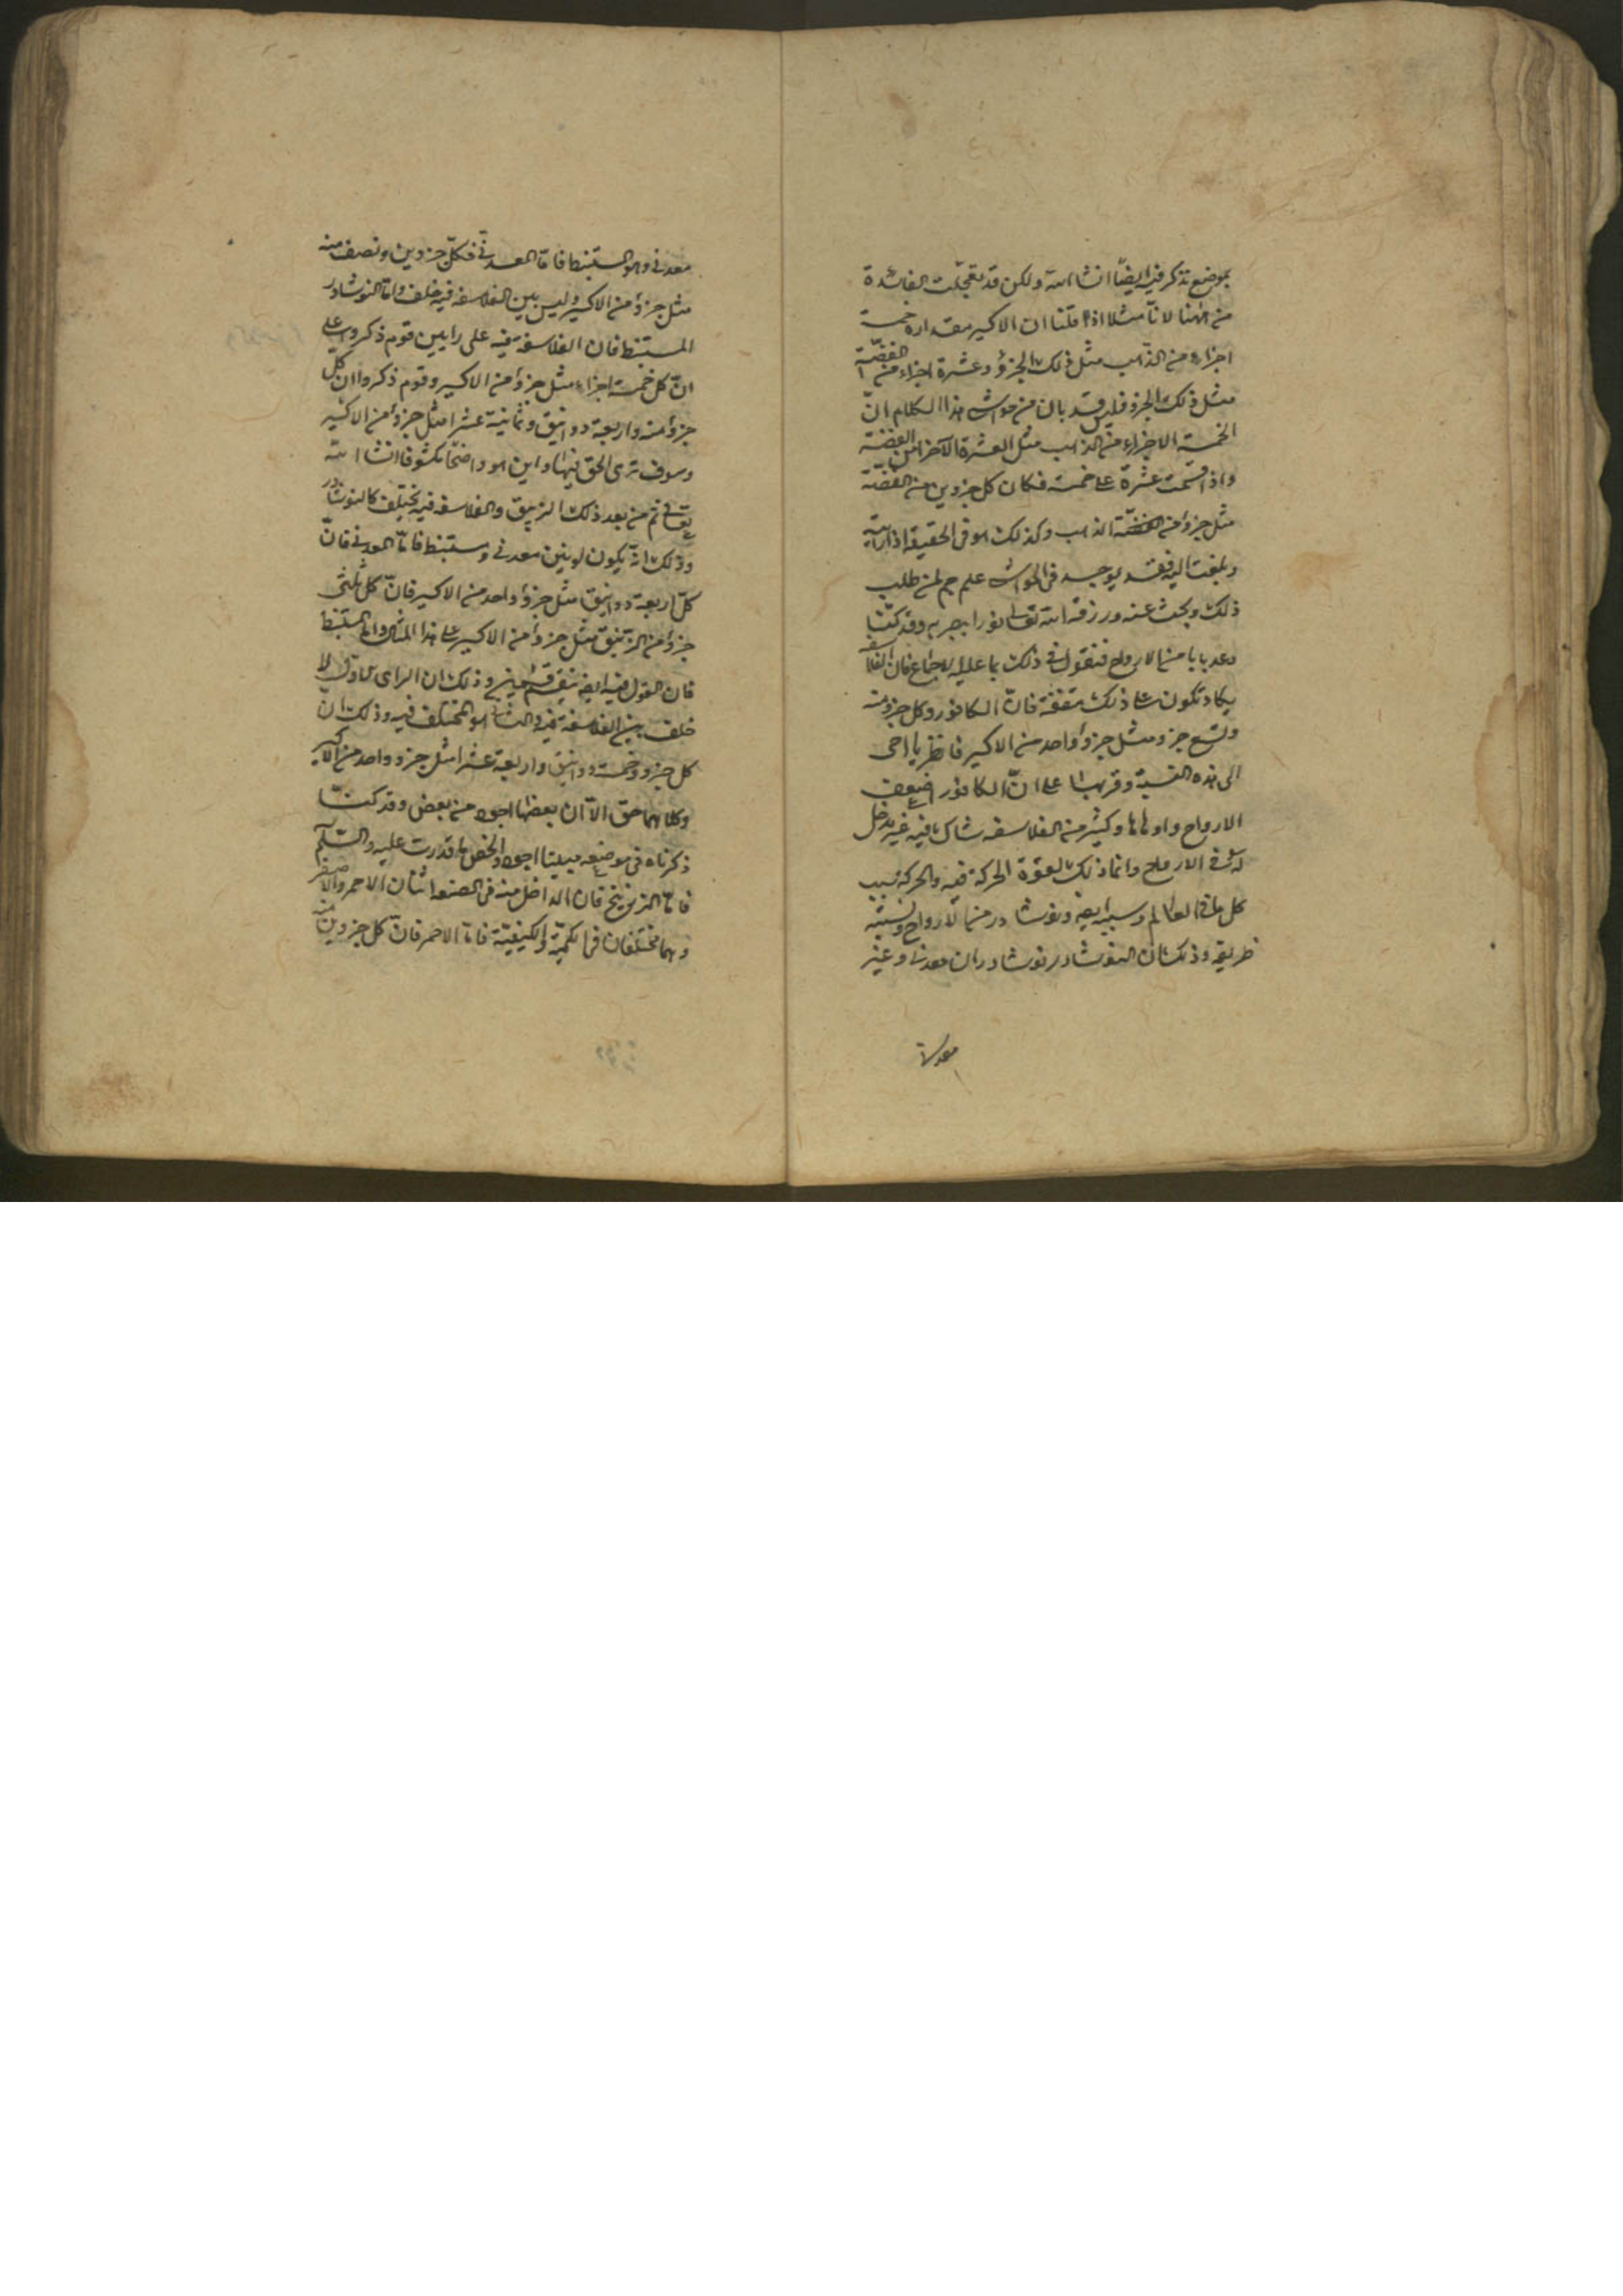 بموضع نذكر فيه ايضًا انشا الله ولكن قد تعجّلت الفائدة
من ههنا لانّا مثلا اذا قلنا ان الاكسير مقداره خمسة
اجزاء من الذهب مثل ذلك الجزؤ وعشرة اجزاء من الفضّة
مثل ذلك الجزو فليس قد بان من هذا الكلام انّ
الخمسة الاجزاء من الذهب مثل العشرة الآخر من الفضة
واذا قسّمت عشرة على خمسة فكان كل جزوين من الفضّة
مثل جزؤ من الذهب وكذلك هو فى الحقيقة اذا
وبلغت اليه فقد يوجد فى علم جم لمن طلب
ذلك وبحث عنه ورزقه الله تعالى نورا يبصر به وقد كنّا
وعد بابا من الارواح فنقول فى ذلك بما عليه الاجماع فان الفلاسفه
يكاد تكون على ذلك متفقة فانّ الكافور وكل جزو منه
وتسع جزو مثل جزؤ واحد من الاكسير فانظر يا اخى
الى هذه النسبة وقربها على انّ الكافور اضعف
الارواح واولها وكثير من الفلاسفه شاك فيه غير مدخل
له فى الارواح وانما ذلك لقوّة الحركة فيه والحركة سبب
كل ما فى العالم وسببه ايضا ونوشادر من الارواح ونسبته
طريقه وذلك ان النوشادر نوشادران معدنى وغير
معدنى
معدنى وهو المستنبط فامّا المعدنىّ فكلّ جزوين ونصف منه
مثل جزؤ من الاكسير وليس بين الفلاسفه فيه خلف وامّا النوشادر
المستنبط فان الفلاسفة فيه على رايين قوم ذكروا على
انّ كل خمسة اجزاء مثل جزؤ من الاكسير وقوم ذكروا ان كلّ
جزؤ منه واربعة دوانيق وثمانية عشر امثل جزؤ من الاكسير
وسوف ترى الحق فيها واين هو واضحًا مكشوفا انشا الله
تعالى ثم من بعد ذلك الزيبق والفلاسفه فيه يختلف كالنوشادر
وذلك انّه يكون لونين معدنى ومستنبط فامّا المعدنى فانّ
كلّ اربعة دوانيق مثل جزؤ واحد من الاكسير فانّ كل ثلثى
جزؤ من الزيبق مثل جزؤ من الاكسير على هذا المثال واما المستنبط
فان القول فيه ايضا ينقسم قسمين وذلك ان الراى الاول لا
خلف بين الفلاسفة فيه والثانى هو المختلف فيه وذلك انّ
كل جزو وخمسة دوانيق واربعة عشر امثل جزو واحد من الاكسير
وكلاهما حق الّا ان بعضها اجود من بعض وقد كنّا
ذكرناه فى موضعه فبيّنا اجود والخص ما قدرت عليه والسّلم
فامّا الزرنيخ فان الداخل منه فى الصنعة اثنان الاحمر والاصفر
وهما مختلفان فى الكميّة والكيفيّة فامّا الاحمر فانّ كل جزوين منه